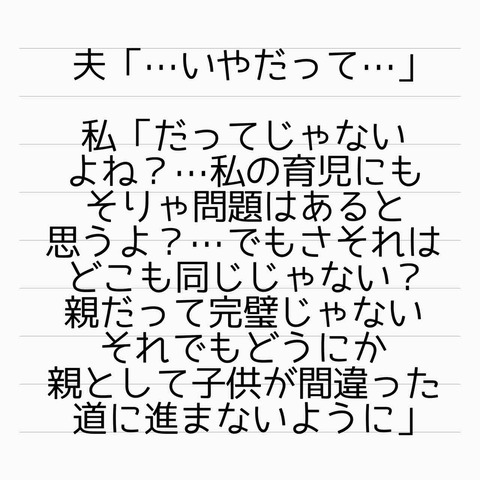 夫「…いやだって…」
私「だってじゃない
よね？…私の育児にも
そりゃ問題はあると
思うよ？…でもさそれは
どこも同じじゃない？
親だって完璧じゃない
それでもどうにか
親として子供が間違った
道に進まないように」